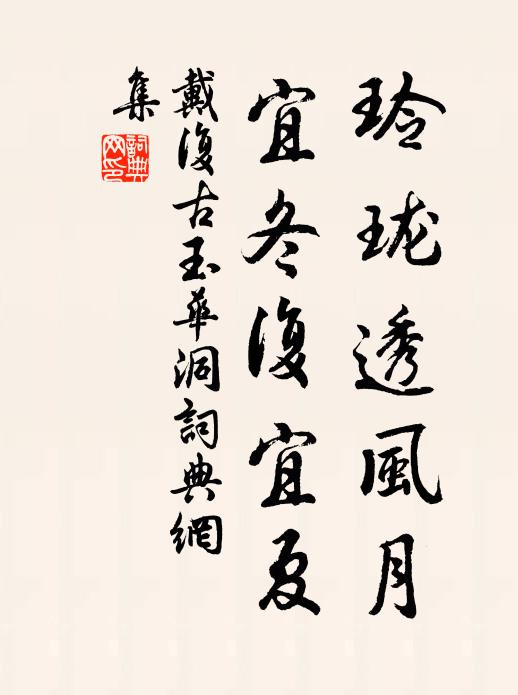 玲珑透風月
宜冬復宜夏
戴復古玉華洞詞典網
集
詞典網印